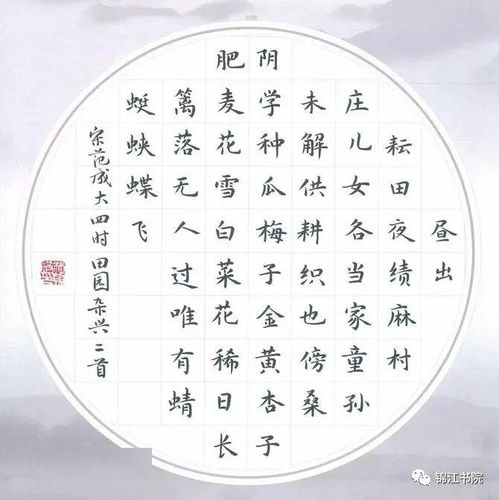 昼出
耘田夜绩麻村
庄儿女各当家童孙
未解供耕织也傍桑
阴学种瓜梅子金黄杏子
肥麦花雪白菜花稀日长
篱落无人过唯有蜻
蜓蛱蝶飞
宋范成大四时田园杂兴二首
锦江书院